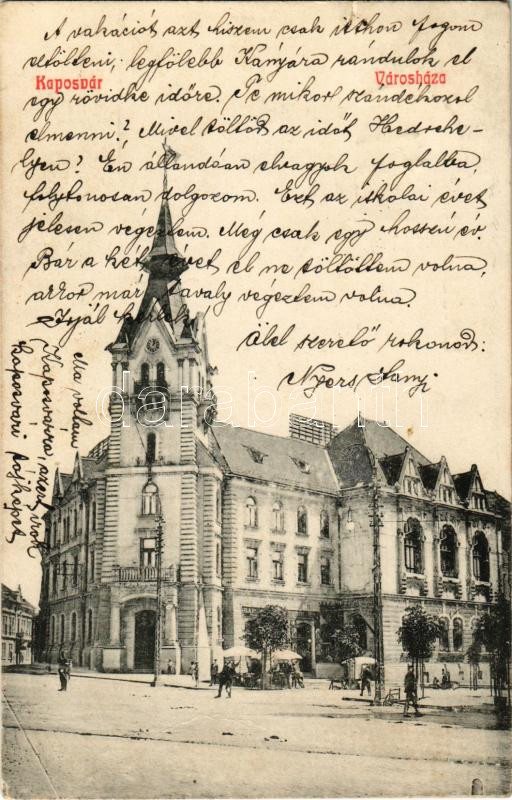 A vakációt azt hiszem csak itthon fogom
eltölteni, legfölebb Kanyára rándulok el
Kaposvár
Városháza
egy rövidke időre. Te mikor szándékozol
elmenni? Mivel töltöd az időt Hedrehe-
lyen? Én állandóan elvagyok foglalva,
folytonosan dolgozom. Ezt az iskolai évet
jelesen végeztem. Még csak egy hosszú év.
Bár a két évet el ne töltöttem volna,
akkor már tavaly végeztem volna.
Írjál kérlek
Ölel szerető rokonod:
Nyers
Ma voltam
Kaposvárra, azért írok
kaposvári tájképet
databank